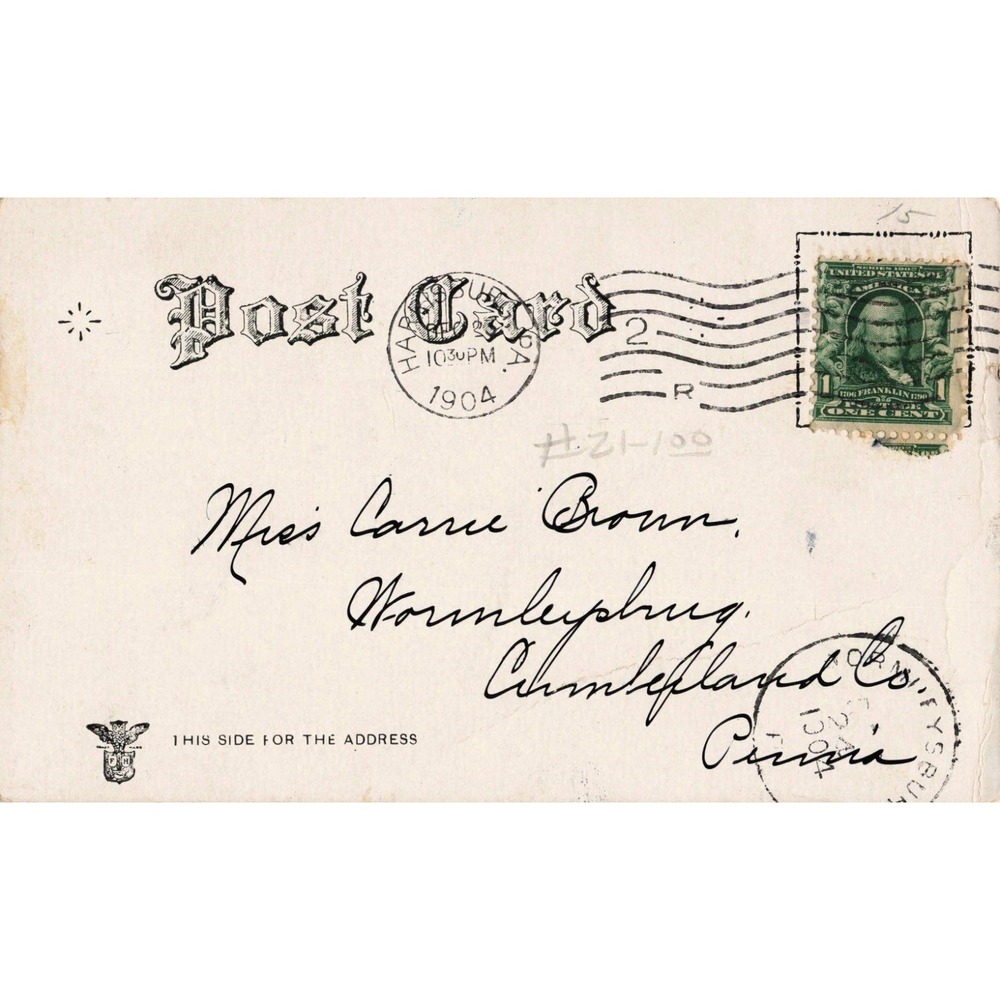 15
Post Card
HARRISBURG, PA.
1030PM
1904
2
R
SERIES 1902
UNITED STATES OF
AMERICA
1706 FRANKLIN 1790
1 1
POSTAGE
ONE CENT
#21-100
Miss Carrie Brown,
Wormleysburg,
Cumberland Co
Penn'a
WORMLEYSBURG
1904
THIS SIDE FOR THE ADDRESS